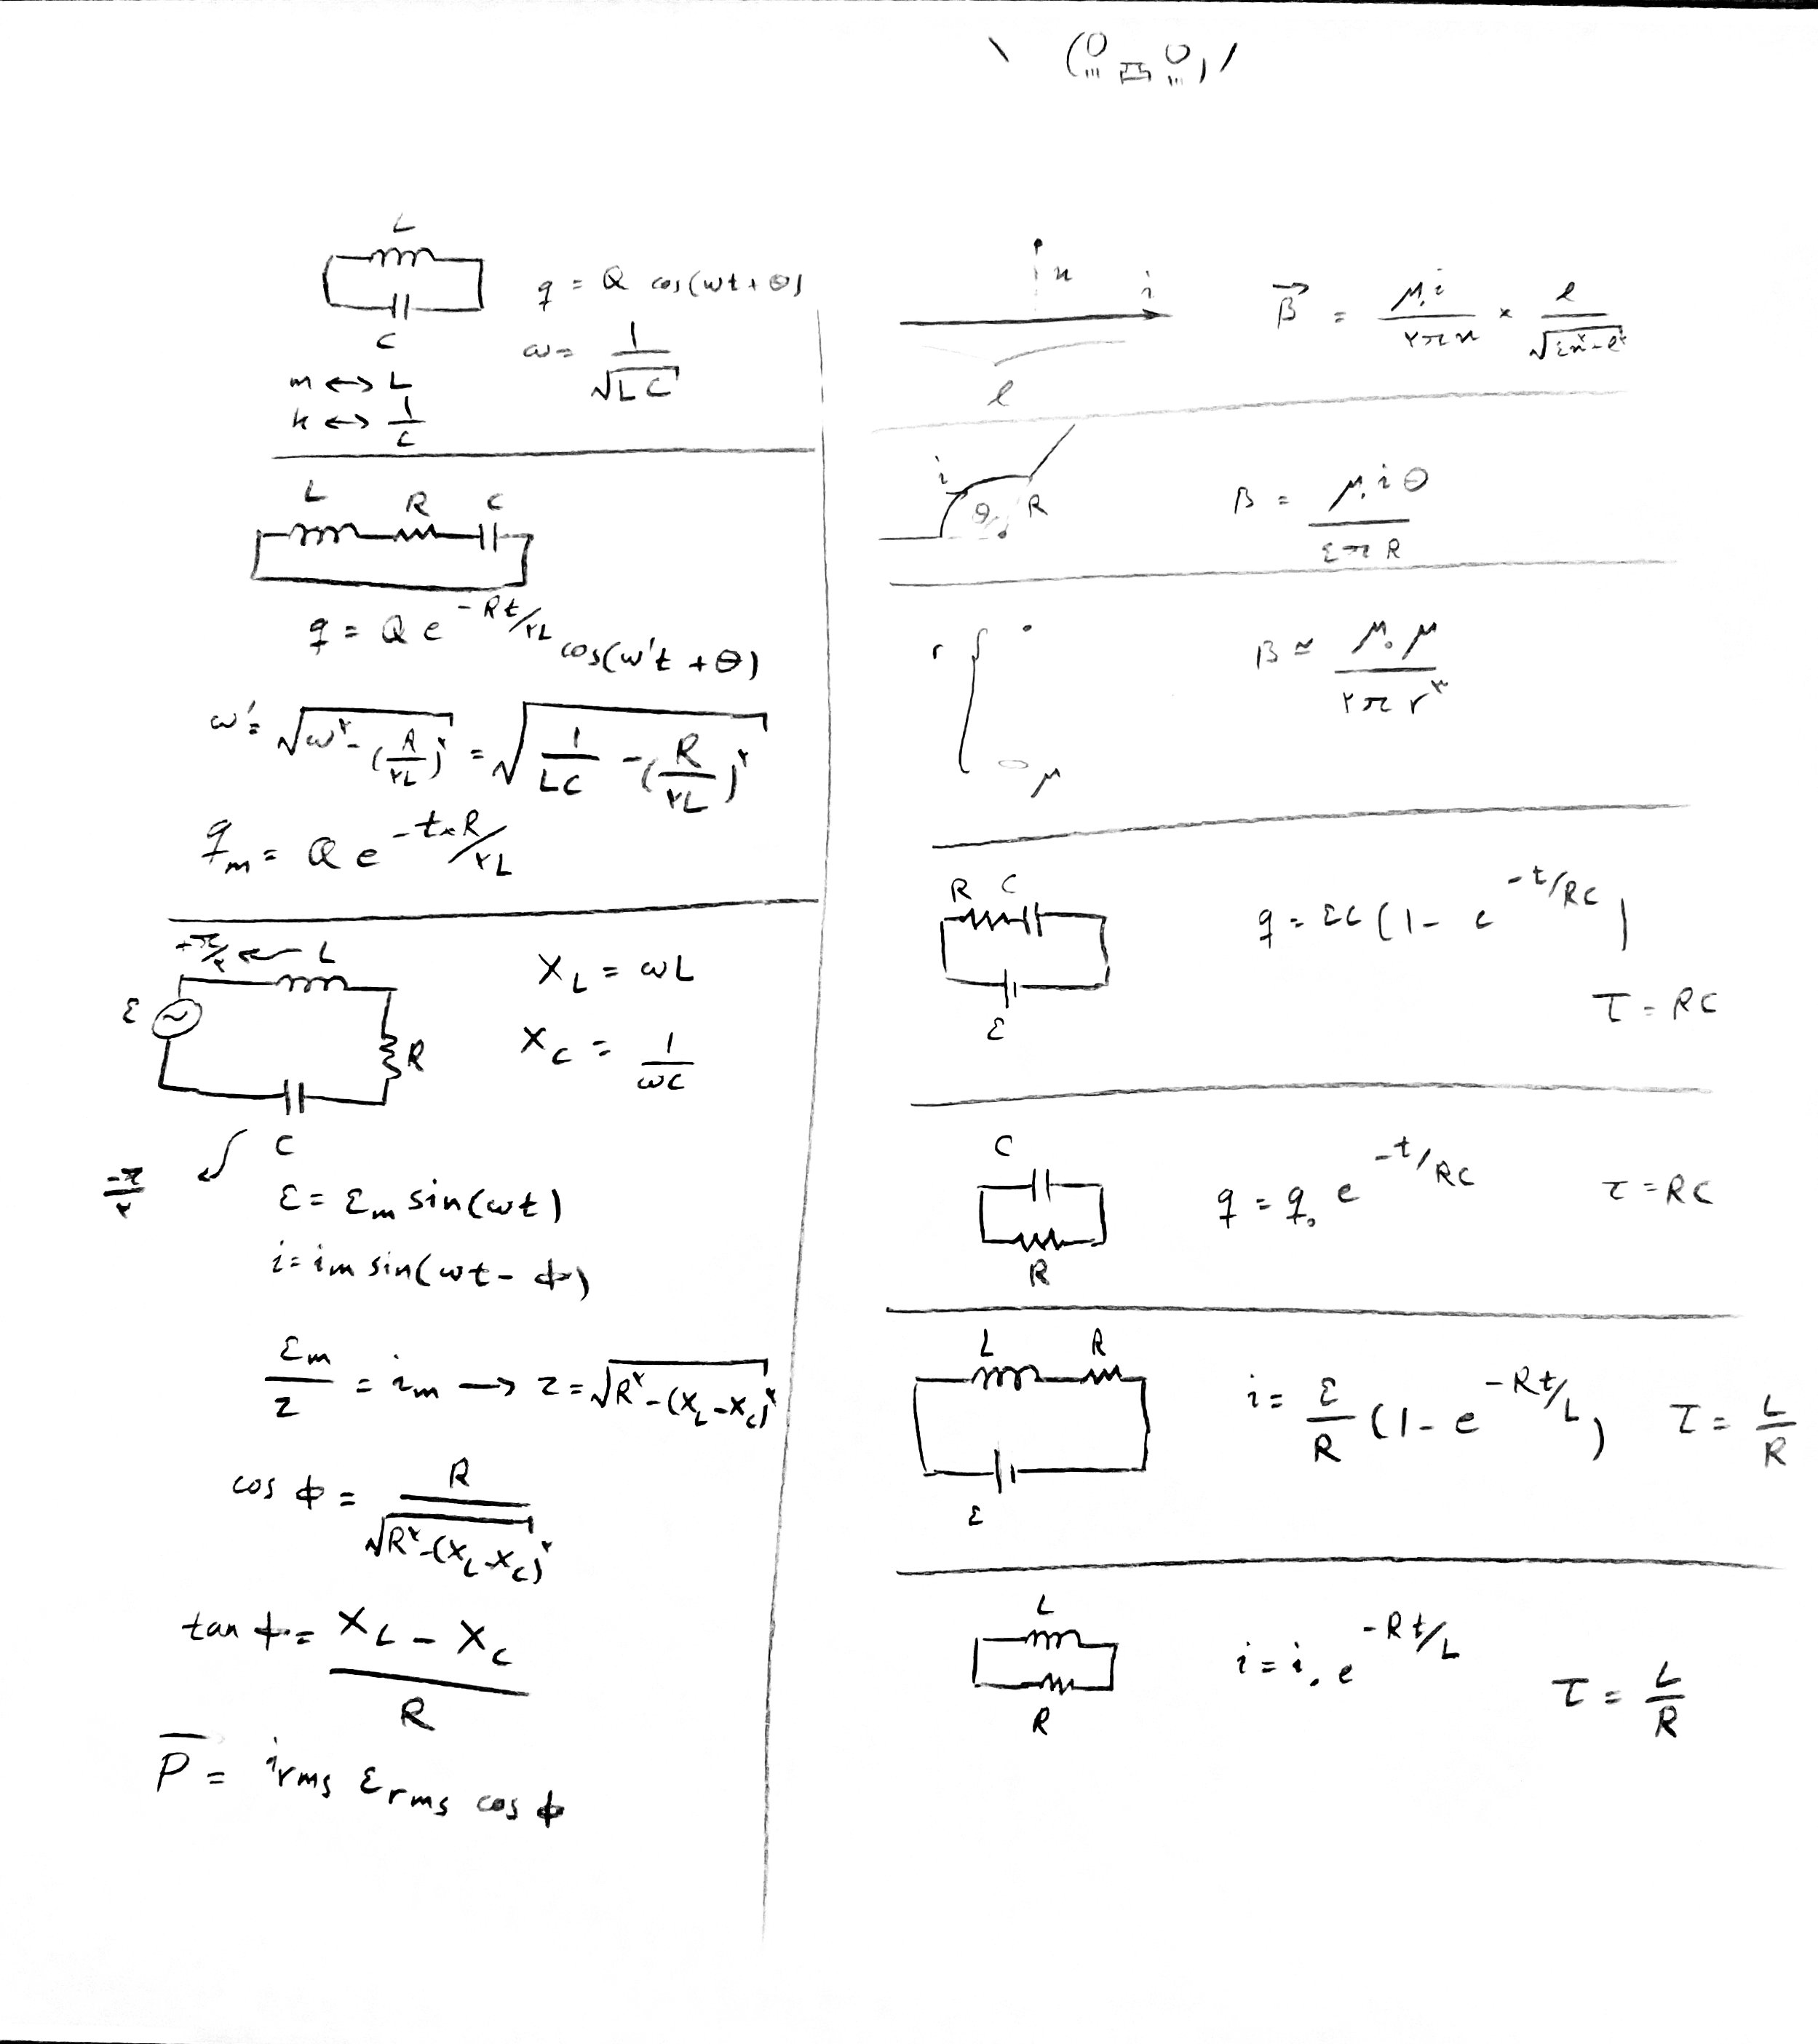 L
q = Q cos(ωt + θ)
C
ω = 1/√(LC)
m ↔ L
k ↔ 1/C
L R C
q = Q e^(-Rt/۲L) cos(ω't + θ)
ω' = √(ω^۲ - (R/۲L)^۲) = √(1/LC - (R/۲L)^۲)
q_m = Q e^(-t×R/۲L)
+π/۲ ← L
ε
R
C
-π/۲
X_L = ωL
X_C = 1/ωC
ε = ε_m sin(ωt)
i = i_m sin(ωt - φ)
ε_m/z = i_m → z = √(R^۲ - (X_L - X_C)^۲)
cos φ = R/√(R^۲ - (X_L - X_C)^۲)
tan φ = (X_L - X_C)/R
P̄ = i_rms ε_rms cos φ
x
i
l
B⃗ = μ۰i/۲πx × l/√(٤x^۲ - l^۲)
i
θ
R
B = μ۰iθ/٤πR
r
μ
B ≃ μ۰μ/۲πr^۳
R C
ε
q = εC(1 - e^(-t/RC))
τ = RC
C
R
q = q۰ e^(-t/RC) τ = RC
L R
ε
i = ε/R (1 - e^(-Rt/L)) τ = L/R
L
R
i = i۰ e^(-Rt/L) τ = L/R